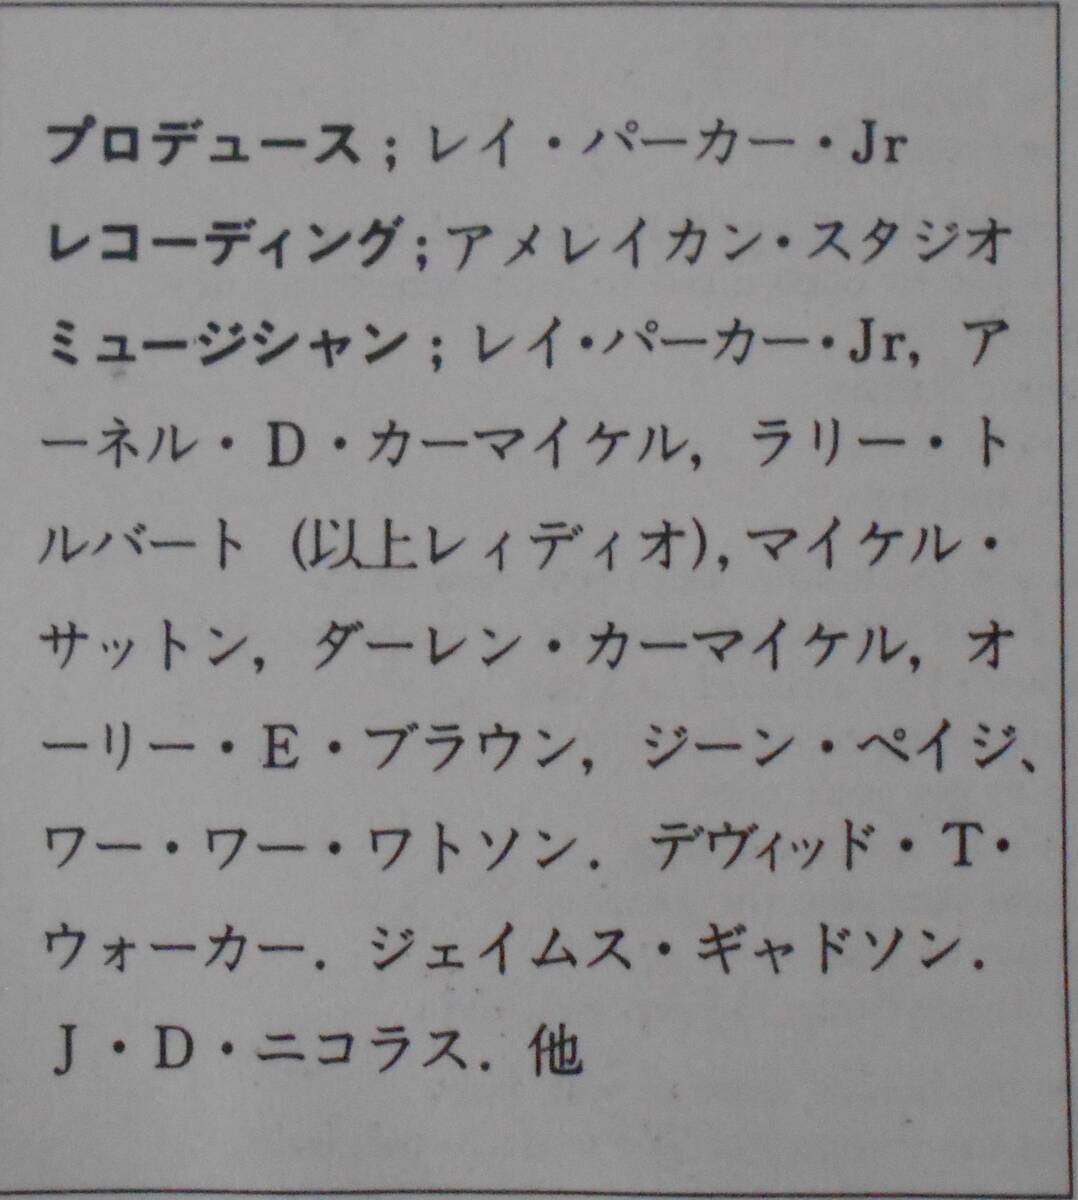 プロデュース；レイ・パーカー・Jr
レコーディング；アメレイカン・スタジオ
ミュージシャン；レイ・パーカー・Jr, ア
ーネル・D・カーマイケル, ラリー・ト
ルバート (以上レィディオ), マイケル・
サットン, ダーレン・カーマイケル, オ
ーリー・E・ブラウン, ジーン・ペイジ、
ワー・ワー・ワトソン. デヴィッド・T・
ウォーカー. ジェイムス・ギャドソン.
J・D・ニコラス. 他